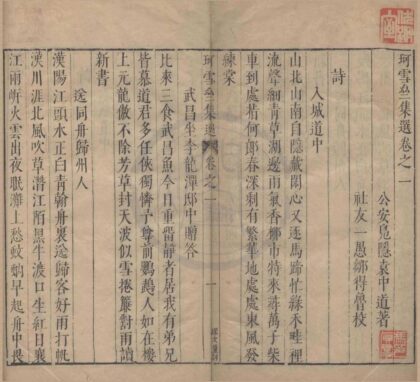 珂雪齋集選卷之一
公安鳧隱袁中道著
社友一愚鄒得魯校
詩
入城道中
山北山南自隱藏閑心又逐馬蹄忙綠禾畦裡
流聲細青草湖邊雨氣香椰市特來
車到處指何郎春深剩有繁華地處處東風發
棣棠
珂雪齋集選 卷之一 一
武昌坐李龍潭邸中贈答
比來三食武昌魚今日重留靜者居我有弟兄
皆慕道君多任俠獨憐予尊前鸚鵡人如在樓
上元龍傲不除芳草封天波似雪捲簾對雨讀
新書
送同舟歸州人
漢陽江頭水正白青翰舟裏送歸客好雨打帆
漢川涯北風吹草潛江陌黑牛渡口生紅日襄
江雨㪺火雲出夜眠灘上愁蚊蚋早起舟中畏